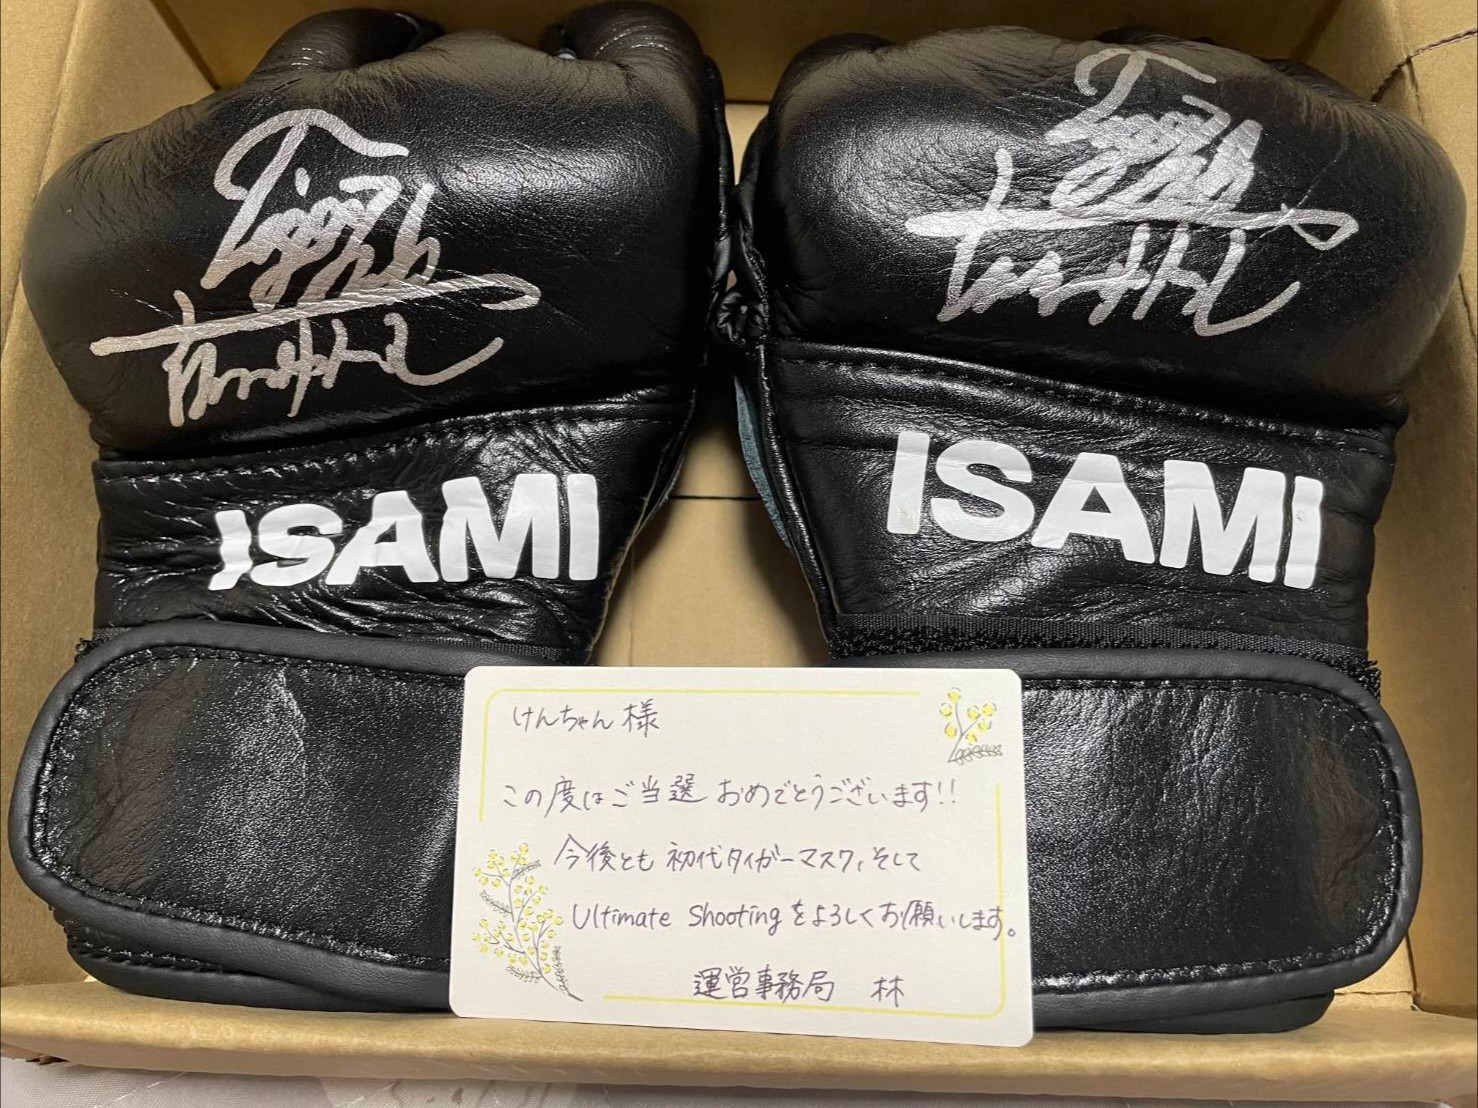 Tiger
Mask
ISAMI
Tiger
Mask
ISAMI
けんちゃん 様
この度はご当選 おめでとうございます!!
今後とも 初代タイガーマスク、そして
Ultimate Shooting をよろしくお願いします。
運営事務局 林